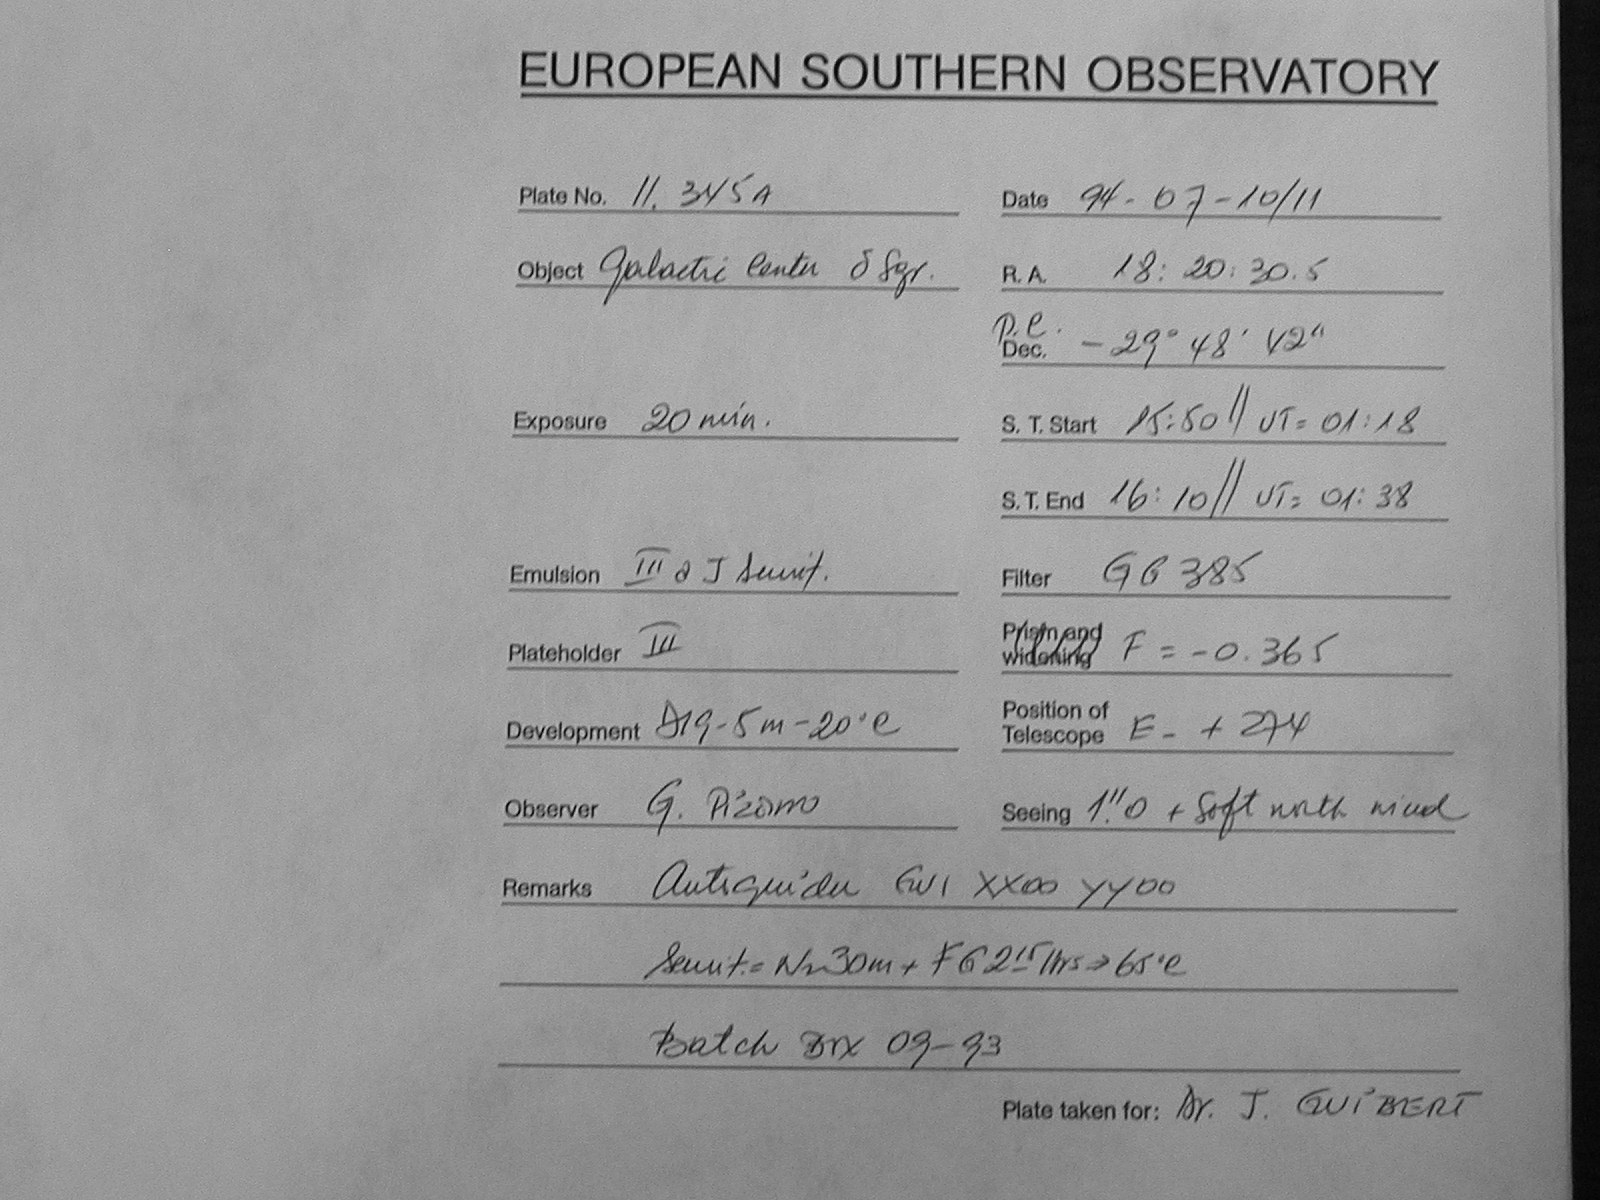 EUROPEAN SOUTHERN OBSERVATORY
Plate No. 11.345A
Date 94-07-10/11
Object Galactic Center δ Sgr.
R. A. 18:20:30.5
P.C.
Dec. -29° 48' 42"
Exposure 20 min.
S. T. Start 15:50 // UT= 01:18
S. T. End 16:10 // UT= 01:38
Emulsion III a J Sensit.
Filter GG 385
Plateholder III
Prism and
widening F = -0.365
Development D19-5m-20°C
Position of
Telescope E - + 274
Observer G. Pizarro
Seeing 1".0 + Soft north wind
Remarks Autoguider GW1 XX00 YY00
Sensit.= N2 30m + FG 2 15 hrs → 65°C
Batch 09-93
Plate taken for: Dr. J. GUIBERT